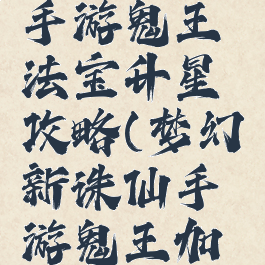 手游鬼王
法宝升星
攻略(梦幻
新诛仙手
游鬼王加